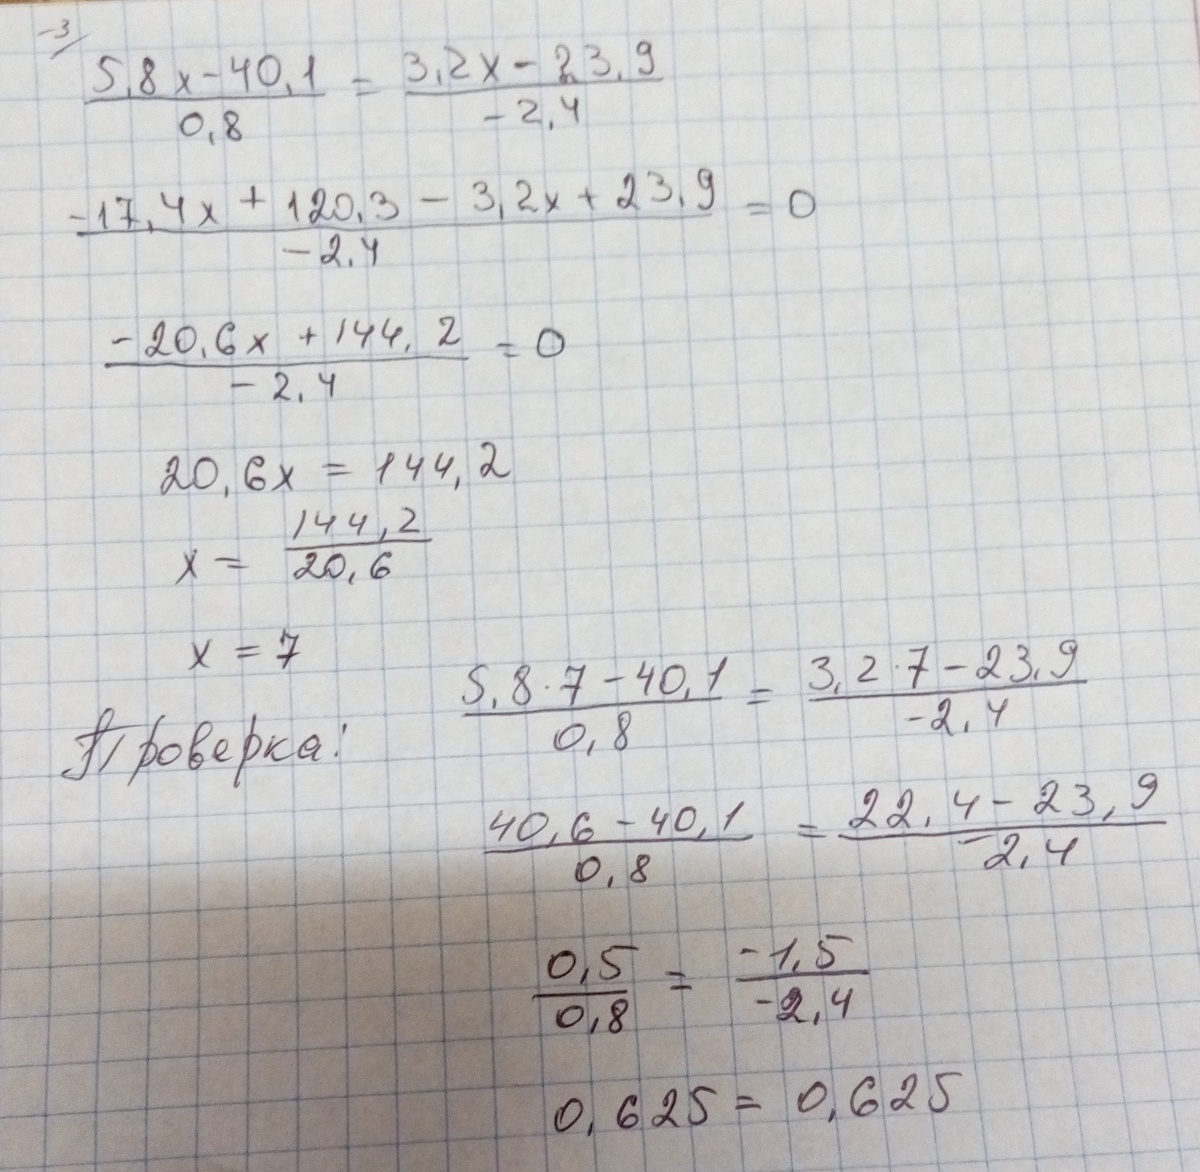 -3/
5,8x-40,1 / 0,8 = 3,2x-23,9 / -2,4
-17,4x+120,3-3,2x+23,9 / -2,4 = 0
-20,6x+144,2 / -2,4 = 0
20,6x = 144,2
x = 144,2 / 20,6
x = 7
Проверка: 5,8·7-40,1 / 0,8 = 3,2·7-23,9 / -2,4
40,6-40,1 / 0,8 = 22,4-23,9 / -2,4
0,5 / 0,8 = -1,5 / -2,4
0,625 = 0,625